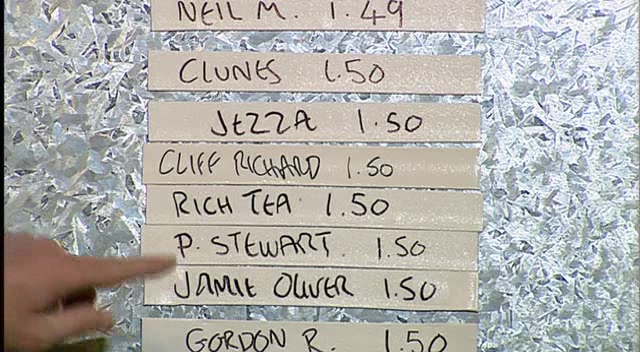 NEIL M. 1.49
CLUNES 1.50
JEZZA 1.50
CLIFF RICHARD 1.50
RICH TEA 1.50
P. STEWART. 1.50
JAMIE OLIVER 1.50
GORDON R. 1.50